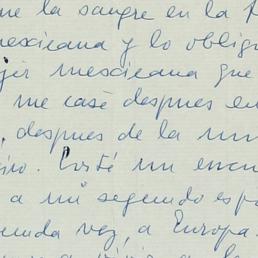 me la sangre en la
mexicana y lo oblig
jer mexicana que
me casé despues en
, despues de la
iro. Corté un
a mi segundo esp
unda vez, a Europa.